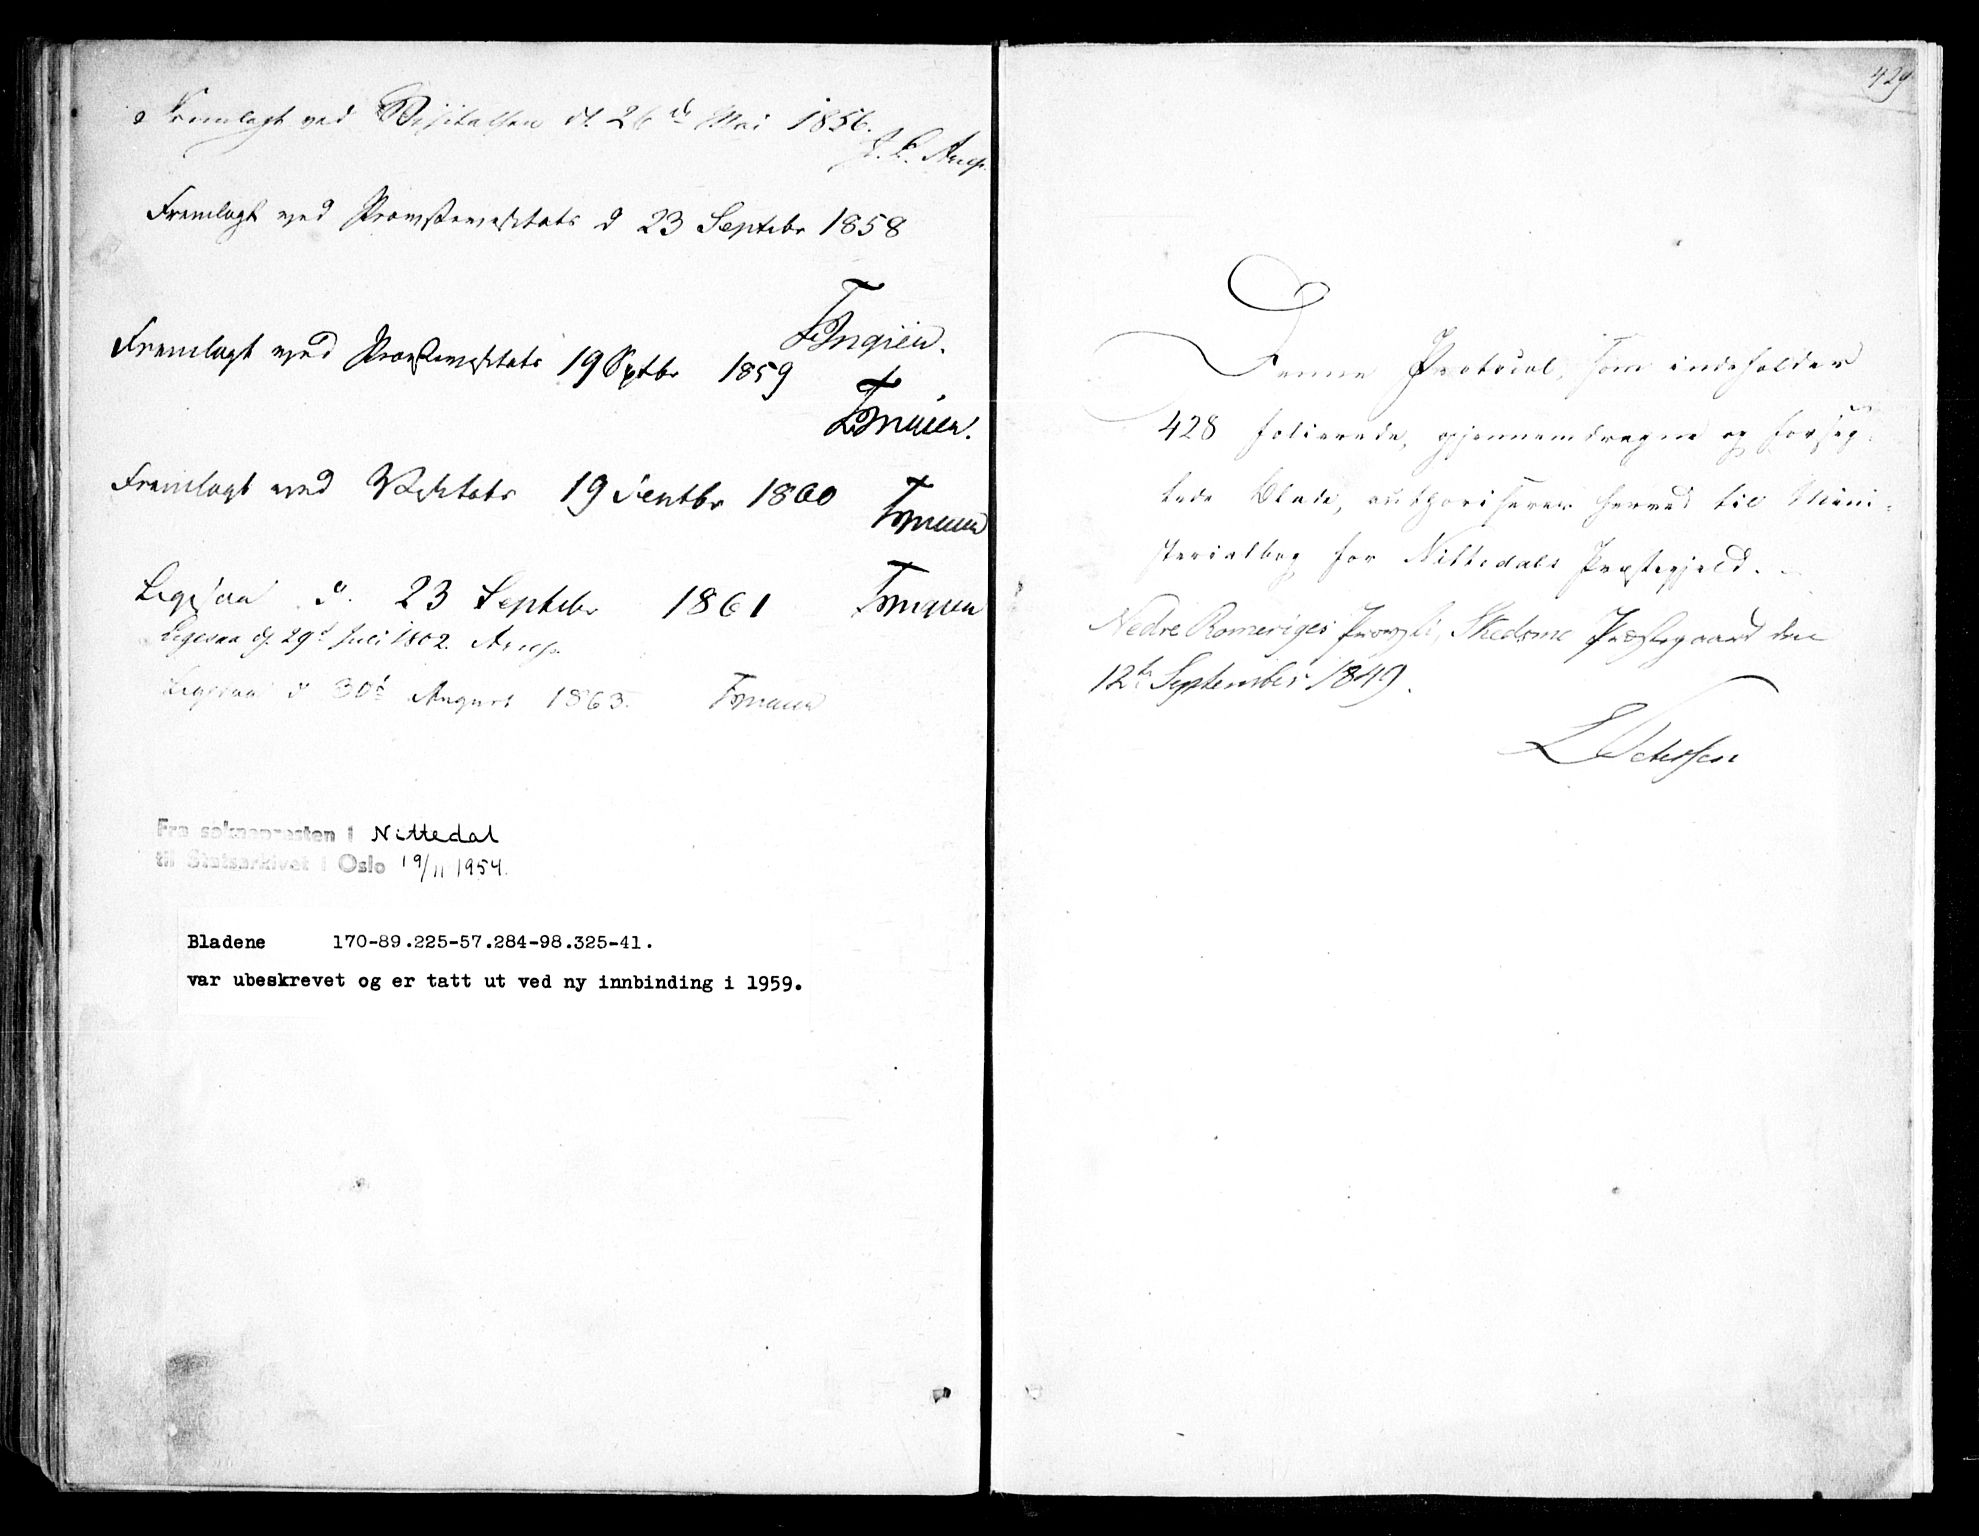 Fremlagt ved Visitatsen d. 26de Mai 1856.
J. L. Arup.
Fremlagt ved Provstevisitats d 23 Septebr 1858
Fremlagt ved Provstevisitats 19 Sptbr 1859
Fremlagt ved Visitats 19 Septbr 1860
Ligesaa d. 23 Septebr 1861
Ligesaa d. 29d Juli 1862. Arup.
Ligesaa d 30d August 1863.
Fra soknepresten i Nittedal
til Statsarkivet i Oslo 19/11 1954.
Bladene 170-89.225-57.284-98.325-41.
var ubeskrevet og er tatt ut ved ny innbinding i 1959.
429
Denne Protocol, som indeholder
428 folierede, gjennemdragne og forseg-
lede Blade, authoriseres herved til Mini-
sterialbog for Nittedals Præstegjeld.
Nedre Romeriges Provsti, Skedsmo Præstegaard den
12te September 1849.